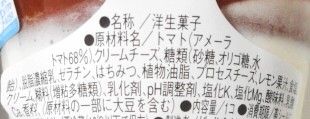 ●名称／洋生菓子
●原材料名／トマト(アメーラ
トマト68%)、クリームチーズ、糖類(砂糖、オリゴ糖、水
飴)、脱脂濃縮乳、ゼラチン、はちみつ、植物油脂、プロセスチーズ、レモン果汁、
クリーム、糊料(増粘多糖類)、乳化剤、pH調整剤、塩化K、塩化Mg、酸味料、
香料、(原材料の一部に大豆を含む) ●内容量／1コ